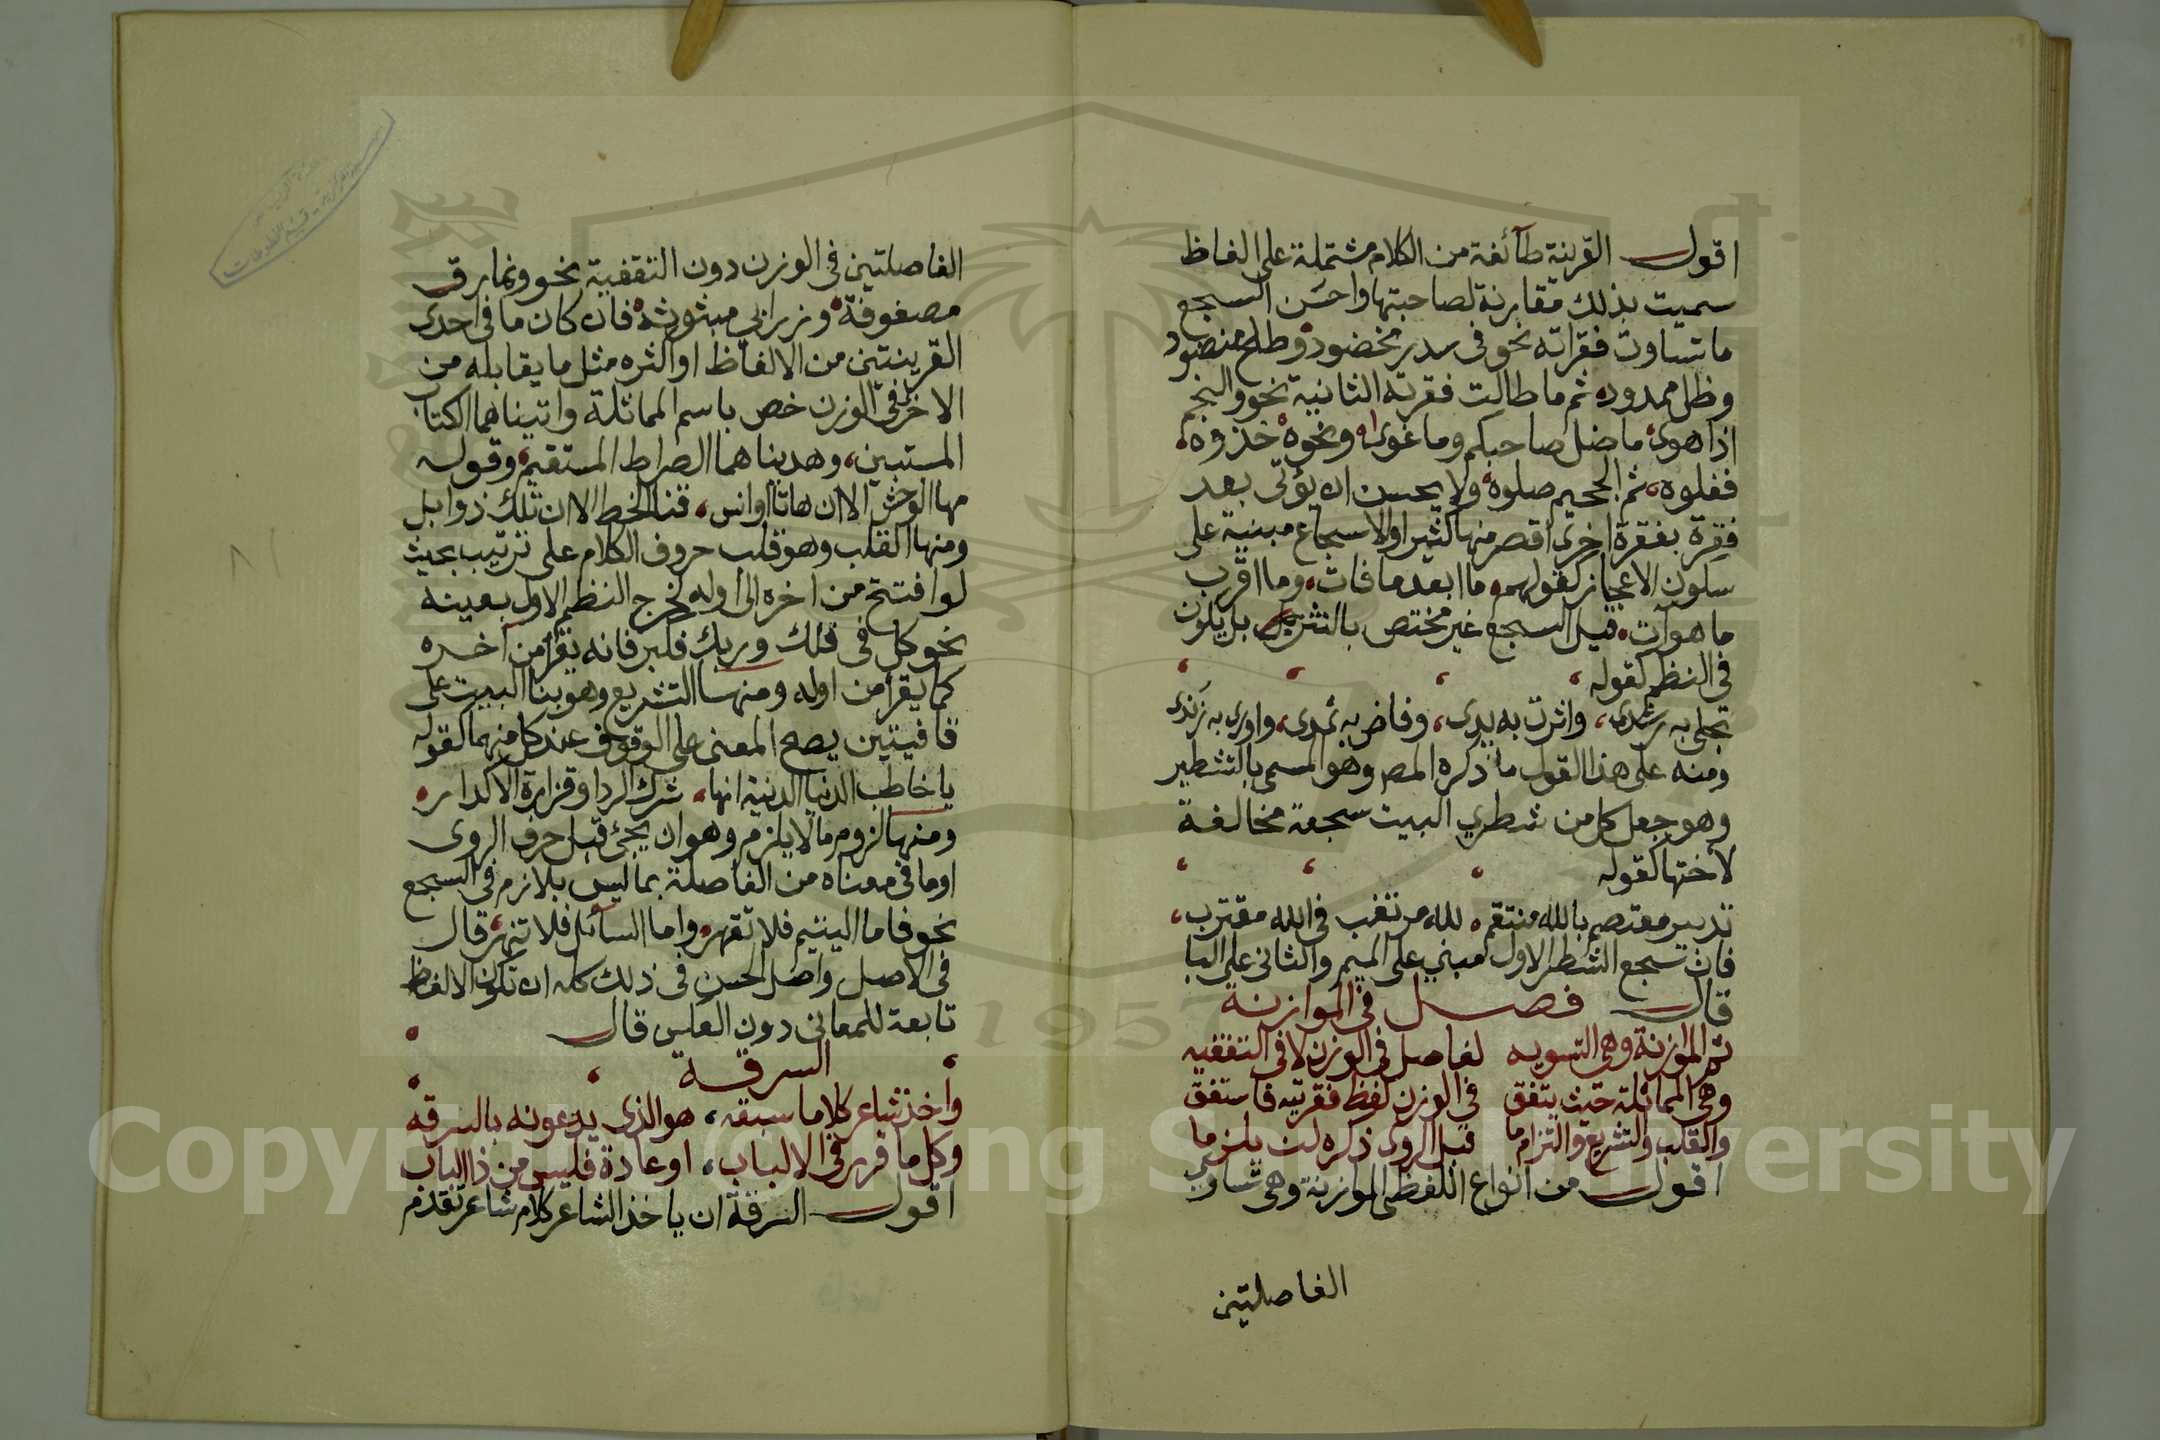 اقول القرينة طآئفة من الكلام مشتملة على الفاظ
سميت بذلك مقارنة لصاحبتها واحسن السجع
ما تساوت فقراته نحو في سدر مخضود وطلح منضود
وظل ممدود ثم ما طالت فقرته الثانية نحو والنجم
اذا هوى ما ضل صاحبكم وما غوى ونحوه خذوه
فغلوه ثم الجحيم صلوه ولا يحسن ان يؤتى بعد
فقرة بفقرة اخرى اقصر منها كثيرا والاسجاع مبنية على
سكون الاعجاز كقولهم ما ابعد ما فات وما اقرب
ما هو آت قيل السجع غير مختص بالنثر بل يكون
في النظم كقوله
تجلى به رشدى، واثرت به يدى، وفاض به ثمدى، واورى به زندى
ومنه على هذا القول ما ذكره المص وهو المسمى بالتشطير
وهو جعل كل من شطري البيت سجعة مخالفة
لاختها كقوله
تدبير معتصم بالله منتقم لله مرتغب في الله مقترب
فان سجع الشطر الاول مبني على الميم والثانى على البا
قال فصل في الموازنة
ثم الموازنة وهى التسويه لفاصل في الوزن لا في التقفيه
وهي المماثلة حيث يتفق في الوزن لفظ فقرتيه فاستفق
والقلب والتشريع والتزام ما قبل الروى ذكره لن يلزما
اقول من انواع اللفظى الموازنة وهى تساوي
الفاصلتين
الفاصلتين في الوزن دون التقفية نحو ونمارق
مصفوفة وزرابي مبثوثة فان كان ما في احدى
القرينتين من الالفاظ او اكثره مثل ما يقابله من
الاخرى في الوزن خص باسم المماثلة واتيناهما الكتاب
المستبين، وهديناهما الصراط المستقيم، وقوله
مها الوحش الا ان هاتا اوانس، قنا الخط الا ان تلك ذوابل
ومنها القلب وهو قلب حروف الكلام على ترتيب بحيث
لو افتتح من اخره الى أوله لخرج النظم الاول بعينه
نحو كل في فلك وربك فكبر فانه يقرأ من آخره
كما يقرأ من اوله ومنها التشريع وهو بنا البيت على
قافيتين يصح المعنى على الوقوف عند كل منهما كقوله
يا خاطب الدنيا الدنية انها، شرك الردا وقرارة الاكدار
ومنها لزوم ما لا يلزم وهو ان يجئ قبل حرف الروى
او ما في معناه من الفاصلة بما ليس بلازم في السجع
نحو فاما اليتيم فلا تقهر واما السآئل فلا تنهر، قال
في الاصل واصل الحسن في ذلك كله ان تكون الالفاظ
تابعة للمعانى دون العكس قال
السرقة
واخذ شاعر كلاما سبقه، هو الذى يدعونه بالسرقه
وكل ما قرر في الالباب، او عادة فليس من ذا الباب
اقول السرقة ان ياخذ الشاعر كلام شاعر تقدم
Copyright © King Saud University
1957